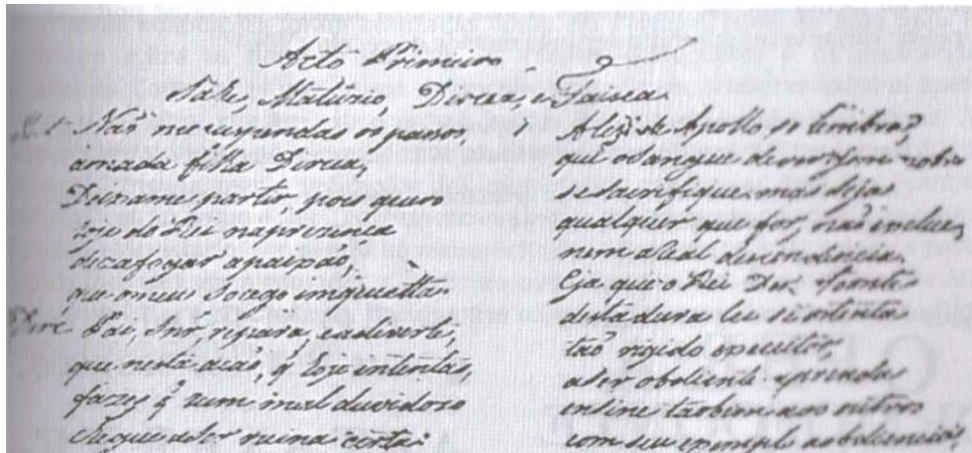 Acto Primeiro
Sahe, Maturio, Dircea, e
Naõ me suspendas os passos,
amada filha Dircea,
Deixame partir pois quero
hoje do Rei na prezença
dezafogar a paixaõ,
que o meu socego inquietta.
Dirc. Pai, Snr, repara, e adverte,
que nesta acaõ, q̃ hoje intentas,
fazes q̃ hum mal duvidozo
chegue a ser ruina certa.
A lei de Apollo so lembra,
que o sangue de
se sacrifique, mas seja
qualquer que for, naõ inclue,
nem a Real descendencia.
E ja que o Rei
desta dura lei se ostenta
taõ rigido executor,
a ser obediente aprenda,
ensine taõbem aos outros
com seu exemplo a obediencia,